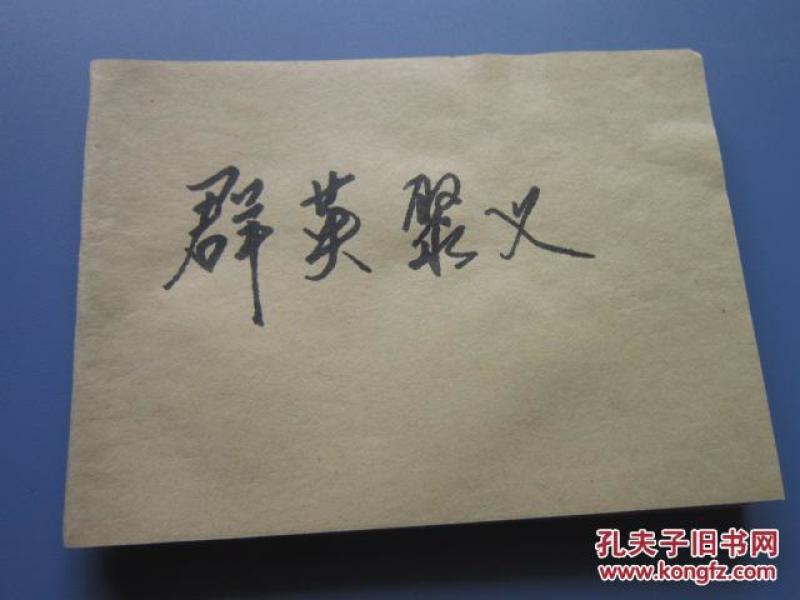 群英聚义
孔夫子旧书网
www.kongfz.com